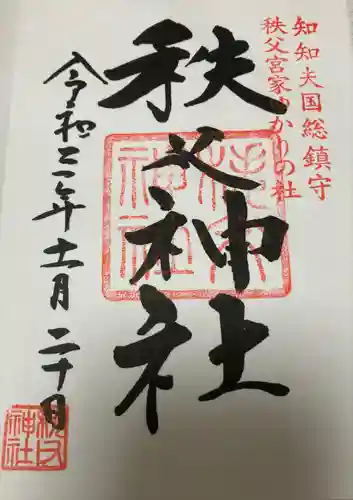 知知夫国総鎮守
秩父宮家ゆかりの社
秩父神社
令和二年十一月二十日
秩父神社
秩父神社